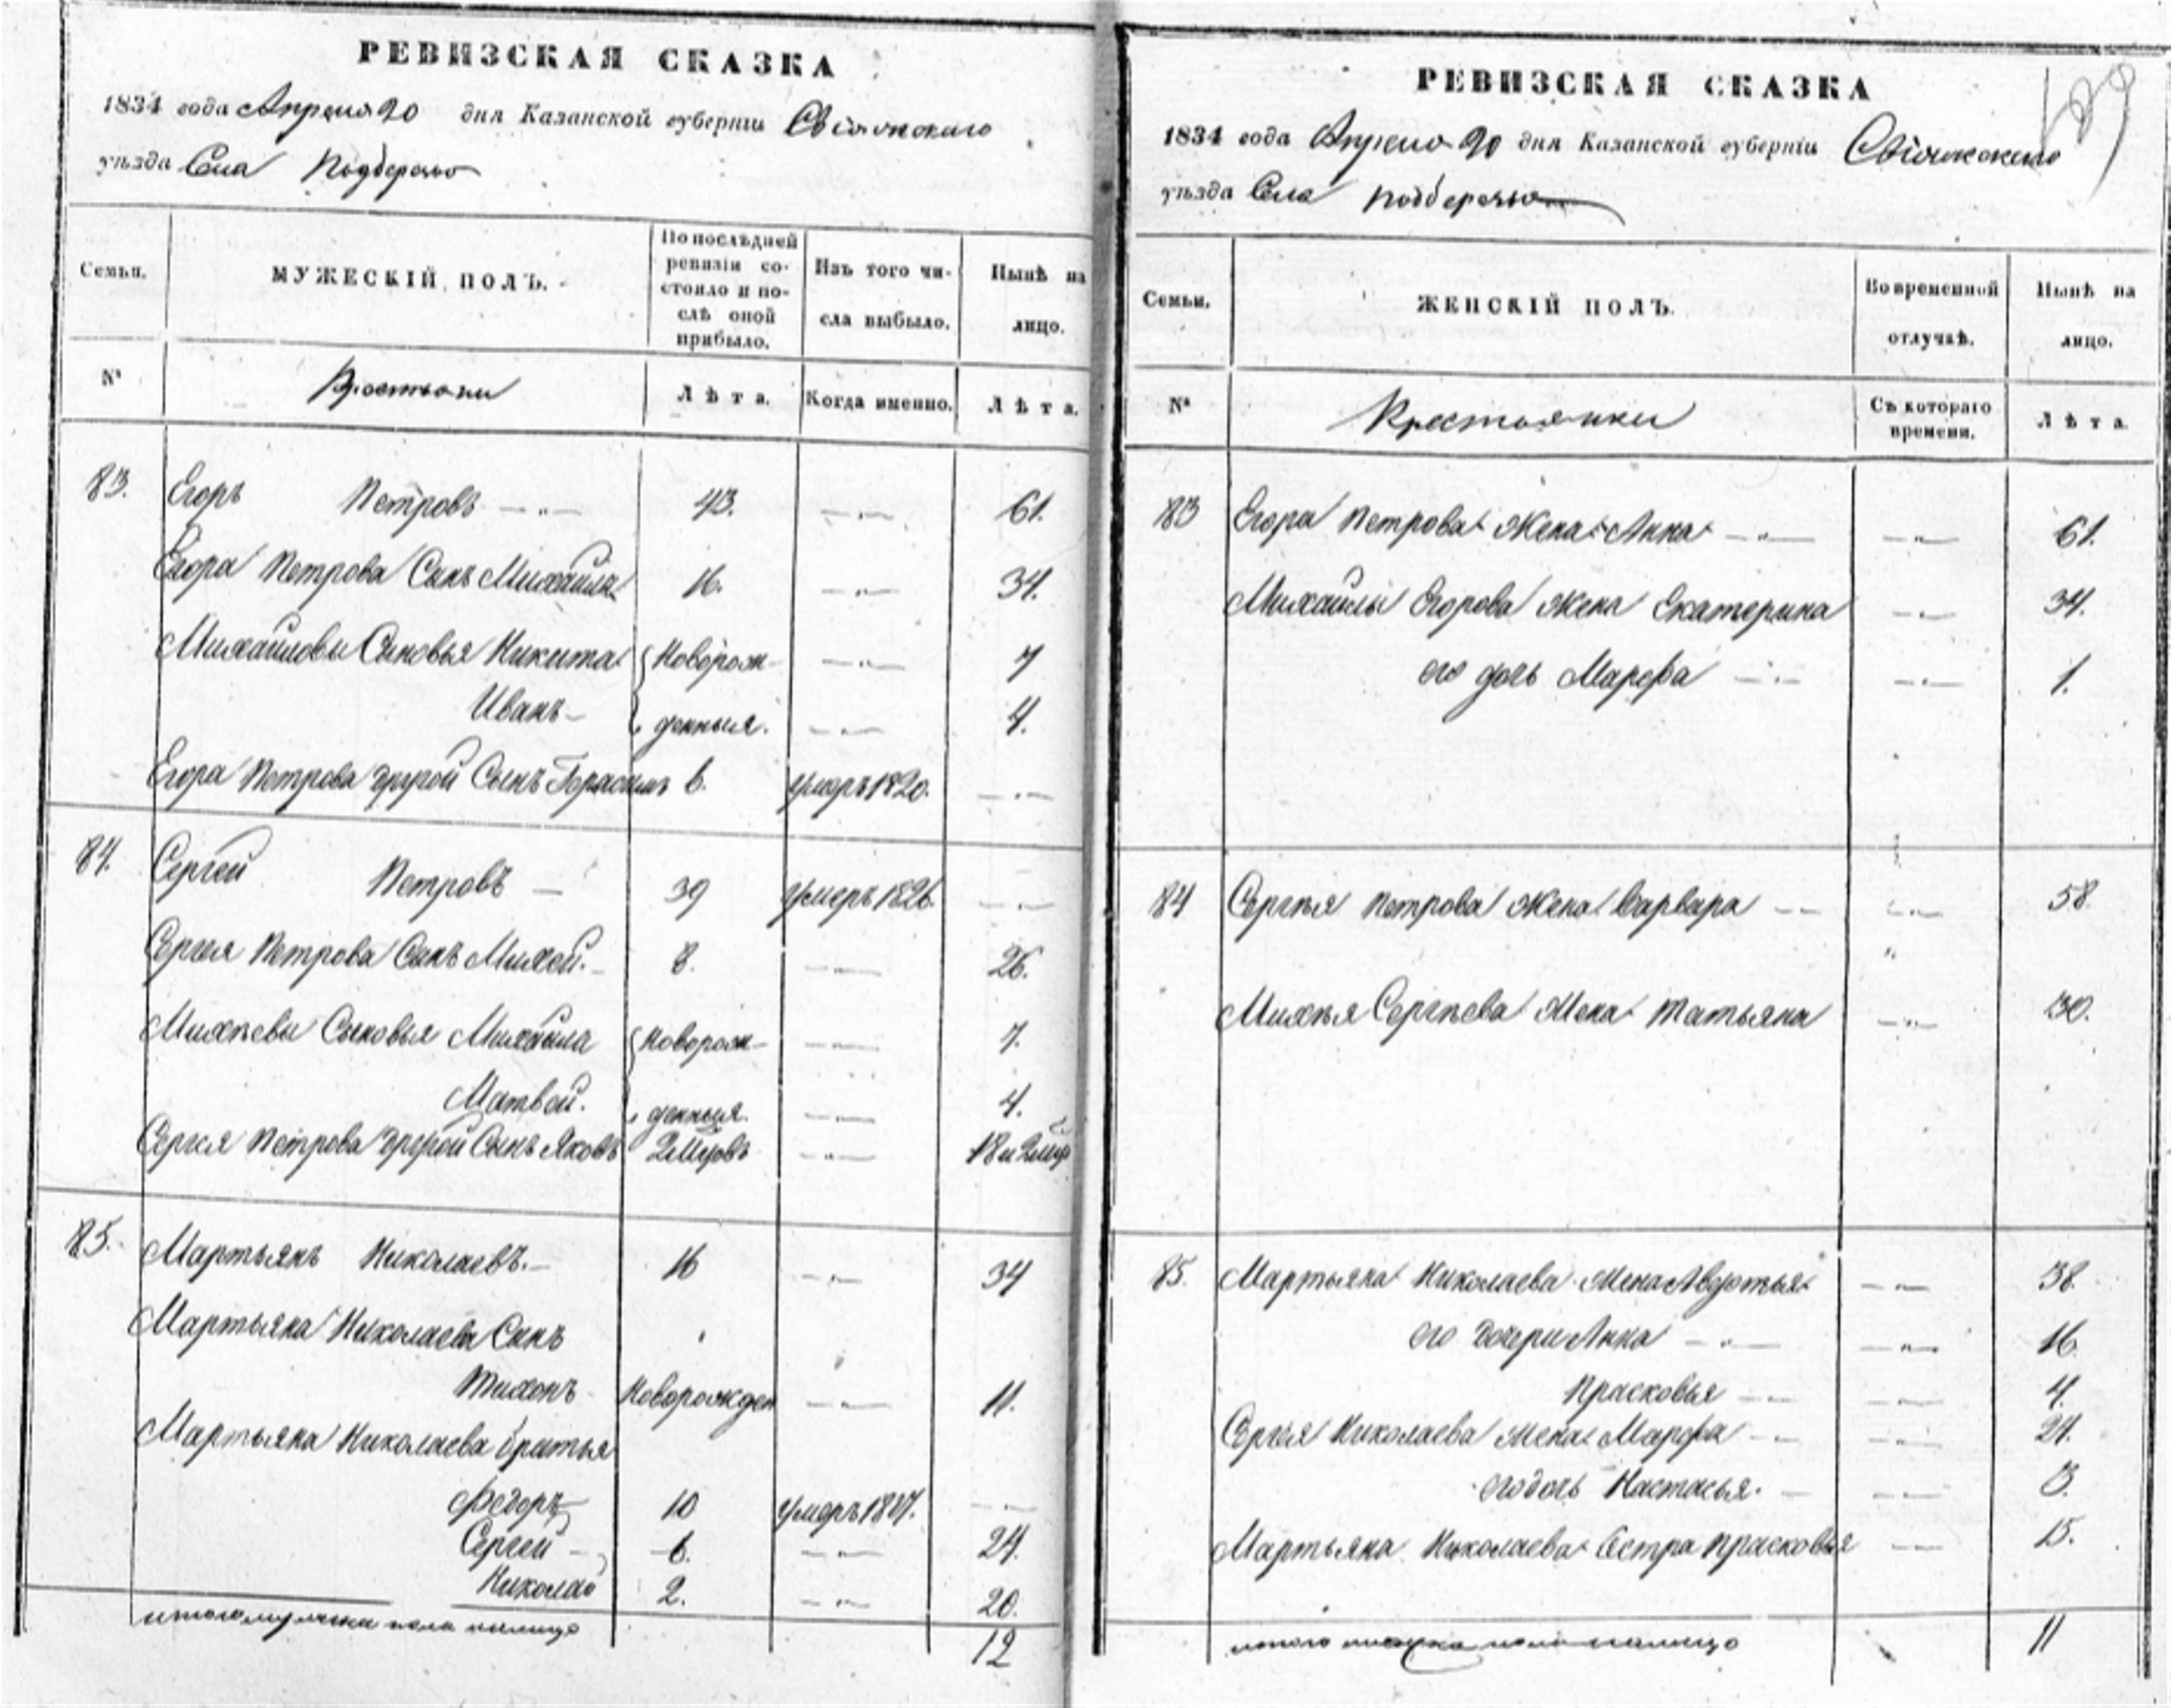 РЕВИЗСКАЯ СКАЗКА
1834 года Апреля 20 дня Казанской губерніи Свіяжскаго
уѣзда Села Подберезья
Семьи.
МУЖЕСКІЙ ПОЛЪ.
По послѣдней
ревизіи со-
стояло и по-
слѣ оной
прибыло.
Изъ того чи-
сла выбыло.
Нынѣ на
лицо.
№
Крестьяни
Лѣта.
Когда именно.
Лѣта.
83. Егоръ Петровъ 43. 61.
Егора Петрова Сынъ Михайла 16. 34.
Михайловы Сыновья Никита Новорож- 7
Иванъ денныя. 4.
Егора Петрова другой Сынъ Герасимъ 6. умеръ 1820.
84. Сергей Петровъ 39 умеръ 1826.
Сергея Петрова Сынъ Михей. 8. 26.
Михѣевы Сыновья Михайла Новорож- 7.
Матвей. денныя. 4.
Сергея Петрова другой Сынъ Яковъ 2 Мцовъ 18 и 2 мцо
85. Мартьянъ Николаевъ. 16 34
Мартьяна Николаева Сынъ
Тихонъ Новорожден 11.
Мартьяна Николаева братья
Федоръ 10 умеръ
Сергей 6. 24.
Николай 2. 20.
итого мужеска пола налицо 12
РЕВИЗСКАЯ СКАЗКА
1834 года Апреля 20 дня Казанской губерніи Свіяжскаго
уѣзда Села Подберезья
Семьи.
ЖЕНСКІЙ ПОЛЪ.
Во временной
отлучкѣ.
Нынѣ на
лицо.
№
Крестьянки
Съ котораго
времени.
Лѣта.
83 Егора Петрова Жена Анна 61.
Михайлы Егорова Жена Екатерина 34.
его дочь Марефа 1.
84 Сергѣя Петрова Жена Варвара 58.
Михѣя Сергѣева Жена Татьяна 30.
85. Мартьяна Николаева Жена Авдотья 38.
его дочери Анна 16.
Прасковья 4.
Сергея Николаева жена Марфа 24.
его дочь Настасья. 3.
Мартьяна Николаева Сестра Прасковья 15.
итого женска пола налицо 11